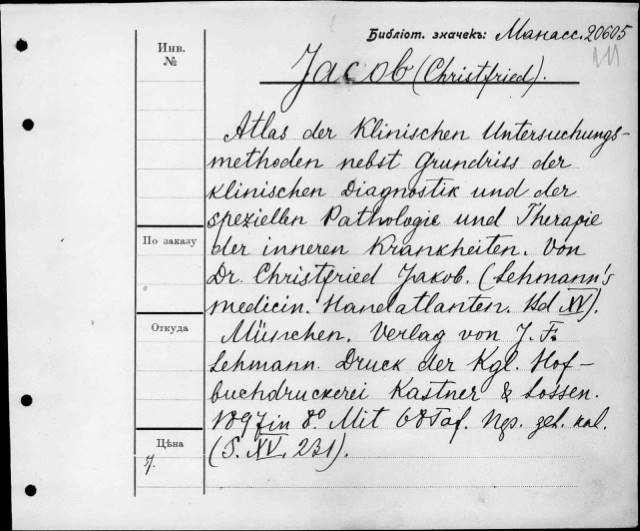 Библіот. значекъ: Манасс. 20605
Инв.
№
Jacob (Christfried).
Atlas der Klinischen Untersuchungs-
methoden nebst Grundriss der
klinischen Diagnostik und der
speziellen Pathologie und Therapie
По заказу
der inneren Krankheiten. Von
Dr. Christfried Jakob. (Lehmann's
medicin. Handatlanten. Bd XV).
Откуда
München. Verlag von J. F.
Lehmann. Druck der Kgl. Hof-
buchdruckerei Kastner & Lossen.
1897 in 8°. Mit 68 Taf.
Цѣна
(S. XV, 231).